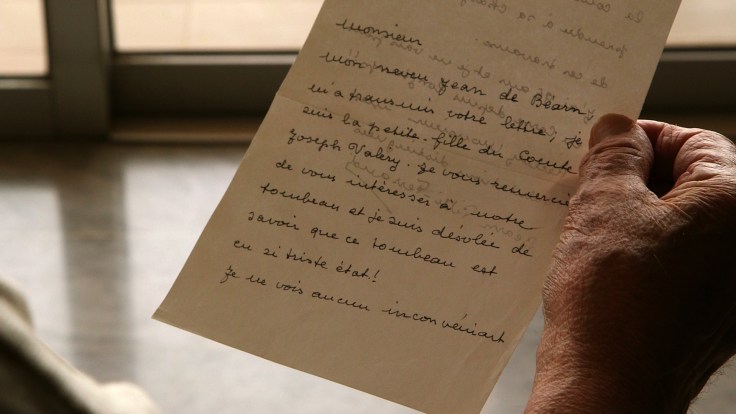 Monsieur
mon neveu Jean de Béarn,
m'a transmis votre lettre, je
suis la petite-fille du Comte
Joseph Valéry. Je vous remercie
de vous intéresser à notre
tombeau et je suis désolée de
savoir que ce tombeau est
en si triste état!
Je ne vois aucun inconvénient